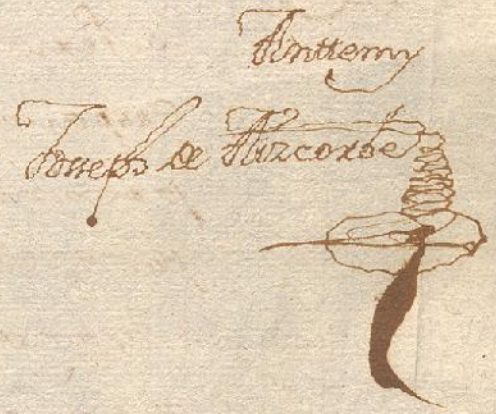 Anttemy
Joseph de Aizcorbe